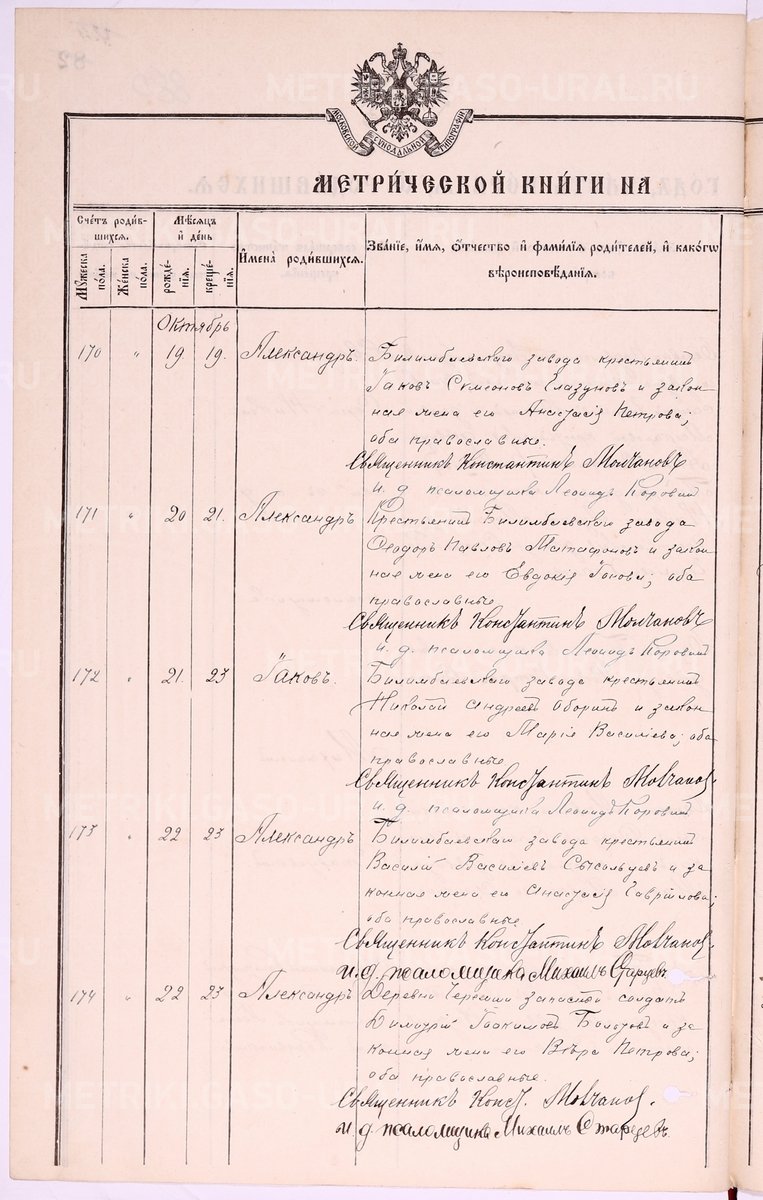 МОСКОВСКОЙ СУНОДАЛЬНОЙ ТИПОГРАФІИ
МЕТРИ́ЧЕСКОЙ КНИ́ГИ НА
Сче́тъ роди́в-
шихся.
Мѣ́сяцъ
и҆ де́нь
Му́жеска
по́ла.
Же́нска
по́ла.
рожде-
нія.
креще-
нія.
И҆мена̀ роди́вшихся.
Зва́ніе, и҆́мя, ѻ҆́тчество и҆ фами́лія роди́телей, и҆ како́гѡ
вѣроисповѣ́данія.
Октябрь
170 „ 19 19. Александръ. Билимбаевскаго завода крестьянинъ
Іаковъ Симеоновъ Глазуновъ и закон-
ная жена его Анастасія Петрова;
оба православные.
Священникъ Константинъ Молчановъ
и. д. псаломщика Леонидъ Коровинъ
171 „ 20 21. Александръ Крестьянинъ Билимбаевскаго завода
Ѳеодоръ Павловъ Матафоновъ и закон-
ная жена его Евдокія Іонова; оба
православные
Священникъ Константинъ Молчановъ
и. д. псаломщика Леонидъ Коровинъ
172 „ 21. 23 Іаковъ. Билимбаевскаго завода крестьянинъ
Николай Андреевъ Оборинъ и закон-
ная жена его Марія Василіева; оба
православные
Священникъ Константинъ Молчановъ
и. д. псаломщика Леонидъ Коровинъ
173 „ 22 23 Александръ Билимбаевскаго завода крестьянинъ
Василій Василіевъ Сысольцевъ и за
конная жена его Анастасія Гавріилова;
оба православные
Священникъ Константинъ Молчановъ.
и. д. псаломщика Михаилъ Старцевъ.
174 „ 22 23 Александръ Деревни запаснои солдатъ
Димитрій Іоакимовъ и за
конная жена его Вѣра Петрова;
оба православные.
Священникъ Конст. Молчановъ.
и. д. псаломщика Михаилъ Старцевъ.
METRIKI.GASO-URAL.RU